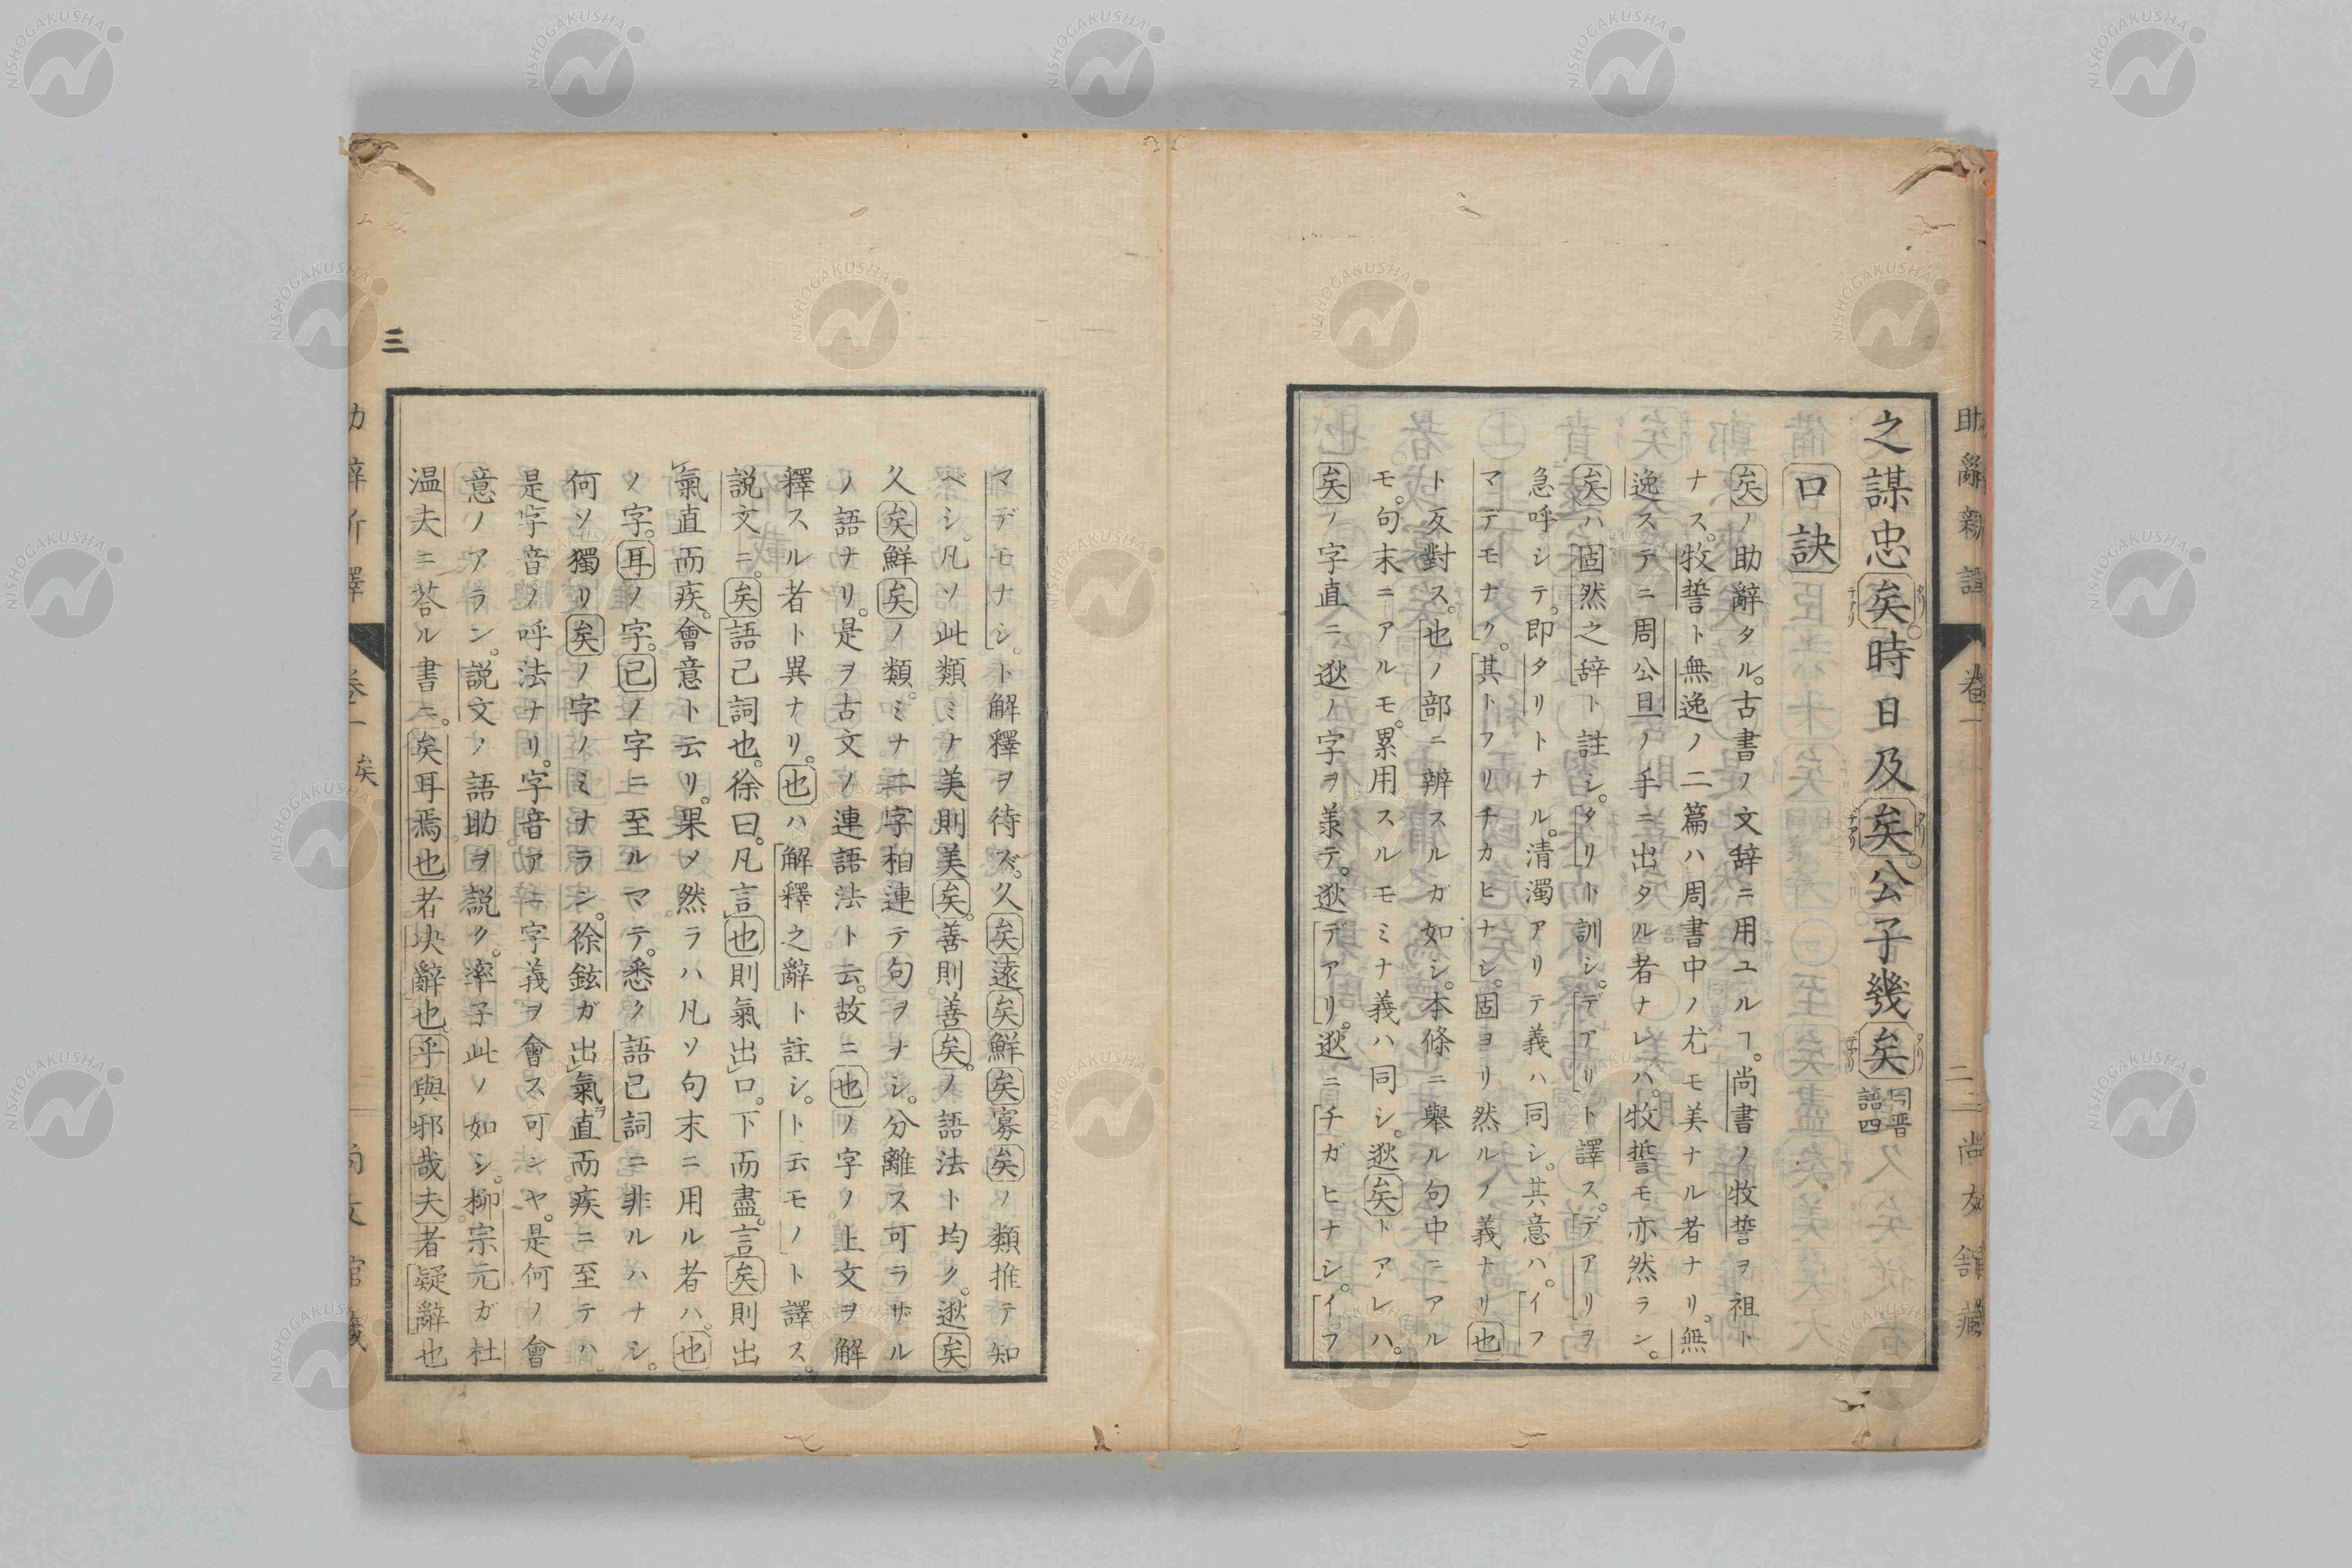 之謀忠矣時日及矣公子幾矣同晋語四
口訣
矣ノ助辭タル。古書ノ文辞ニ用ユルヿ。尚書ノ牧誓ヲ祖ト
ナス。牧誓ト無逸ノ二篇ハ周書中ノ尤モ美ナル者ナリ。無
逸ステニ周公旦ノ手ニ出タル者ナレハ。牧誓モ亦然ラン。
矣ハ固然之辞ト註シ。タリト訓シ。デアリト譯ス。デアリヲ
急呼シテ。即タリトナル。清濁アリテ義ハ同シ。其意ハ。イフ
マデモナク。其トフリチカヒナシ。固ヨリ然ルノ義ナリ也
ト反對ス。也ノ部ニ辨スルガ如シ。本條ニ舉ル句中ニアル
モ。句末ニアルモ。累用スルモミナ義ハ同シ。逖矣トアレハ。
矣ノ字直ニ逖ノ字ヲ羕テ。逖デアリ。逖ニチガヒナシ。イフ
マデモナシ。ト解釋ヲ待ズ。久矣遠矣鮮矣寡矣ノ類推テ知
ベシ。凡ソ此類ミナ美則美矣。善則善矣。ノ語法ト均ク。逖矣
久矣鮮矣ノ類。ミナ二字相連テ句ヲナシ。分離ス可ラザル
ノ語ナリ。是ヲ古文ノ連語法ト云。故ニ也ノ字ノ上文ヲ解
釋スル者ト異ナリ。也ハ解釋之辭ト註シ。ト云モノト譯ス。
説文ニ。矣語已詞也。徐曰。凡言也則氣出口。下而盡。言矣則出
氣直而疾。會意ト云リ。果メ然ラハ凡ソ句末ニ用ル者ハ。也
ノ字。耳ノ字。已ノ字ニ至ルマテ。悉ク語已詞ニ非ルハナシ。
何ソ獨リ矣ノ字ノミナラン。徐鉉ガ出氣直而疾ニ至テハ。
是字音ノ呼法ナリ。字音アニ字義ヲ會ス可ンヤ。是何ノ會
意ノアラン。説文ノ語助ヲ説ク。率子此ノ如シ。柳宗元ガ杜
温夫ニ荅ル書ニ。矣耳焉也者決辭也乎與邪哉夫者疑辭也
三
助辭新譯
卷一
二
尚友舘藏
卷一 矣